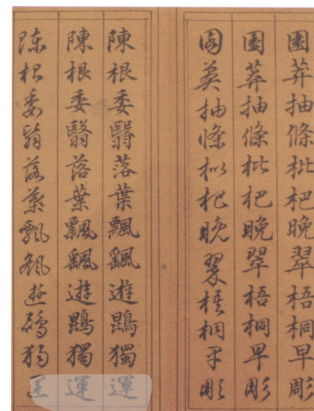 園莽抽條枇杷晚翠梧桐早彫
園莽抽條枇杷晚翠梧桐早彫
園莽抽條枇杷晚翠梧桐早彫
陳根委翳落葉飄颻遊鵾獨運
陳根委翳落葉飄颻遊鵾獨運
陳根委翳落葉飄颻遊鵾獨運